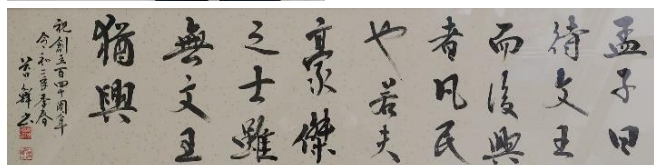 孟子曰
待文王
而後興
者凡民
也若夫
豪傑
之士雖
無文王
猶興
祝創立百四十周年
令和三年季春